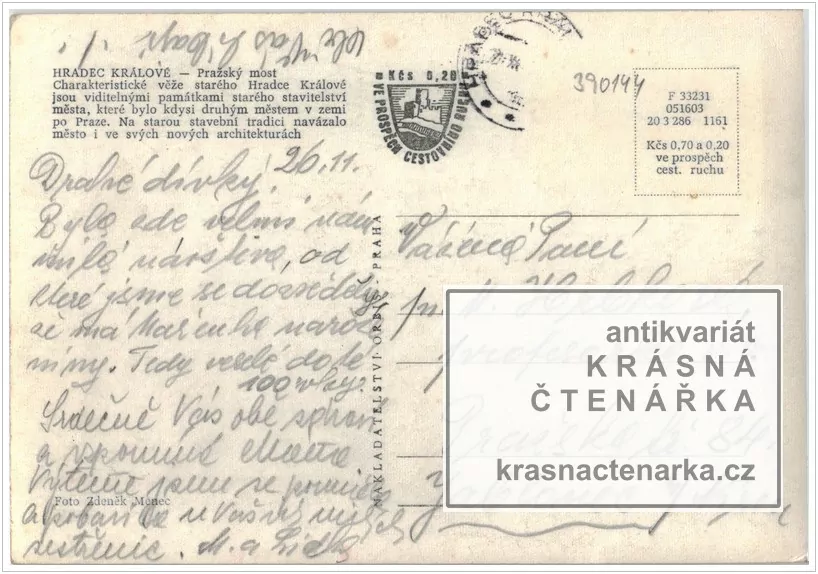 HRADEC KRÁLOVÉ — Pražský most
Charakteristické věže starého Hradce Králové
jsou viditelnými památkami starého stavitelství
města, které bylo kdysi druhým městem v zemi
po Praze. Na starou stavební tradici navázalo
město i ve svých nových architekturách
Kčs 0,20
VE PROSPĚCH CESTOVNÍHO RUCHU
HRADEC KRÁL
390144
F 33231
051603
20 3 286 1161
Kčs 0,70 a 0,20
ve prospěch
cest. ruchu
26.11.
Drahé dívky!
Byla zde velmi nám
milá návštěva, od
které jsme se dozvěděly,
že má Mařenka naroze
niny. Tedy veselé do te
100 vky.
Srdečně Vás obě zdraví
a vzpomíná Mama
Výtečně jsme se pomě
a pobavi u Vaš
sestřenic. M. a Lid
Foto Zdeněk Menec
NAKLADATELSTVÍ ORBIS, PRAHA
Vážená Paní
antikvariát
KRÁSNÁ
ČTENÁŘKA
krasnactenarka.cz